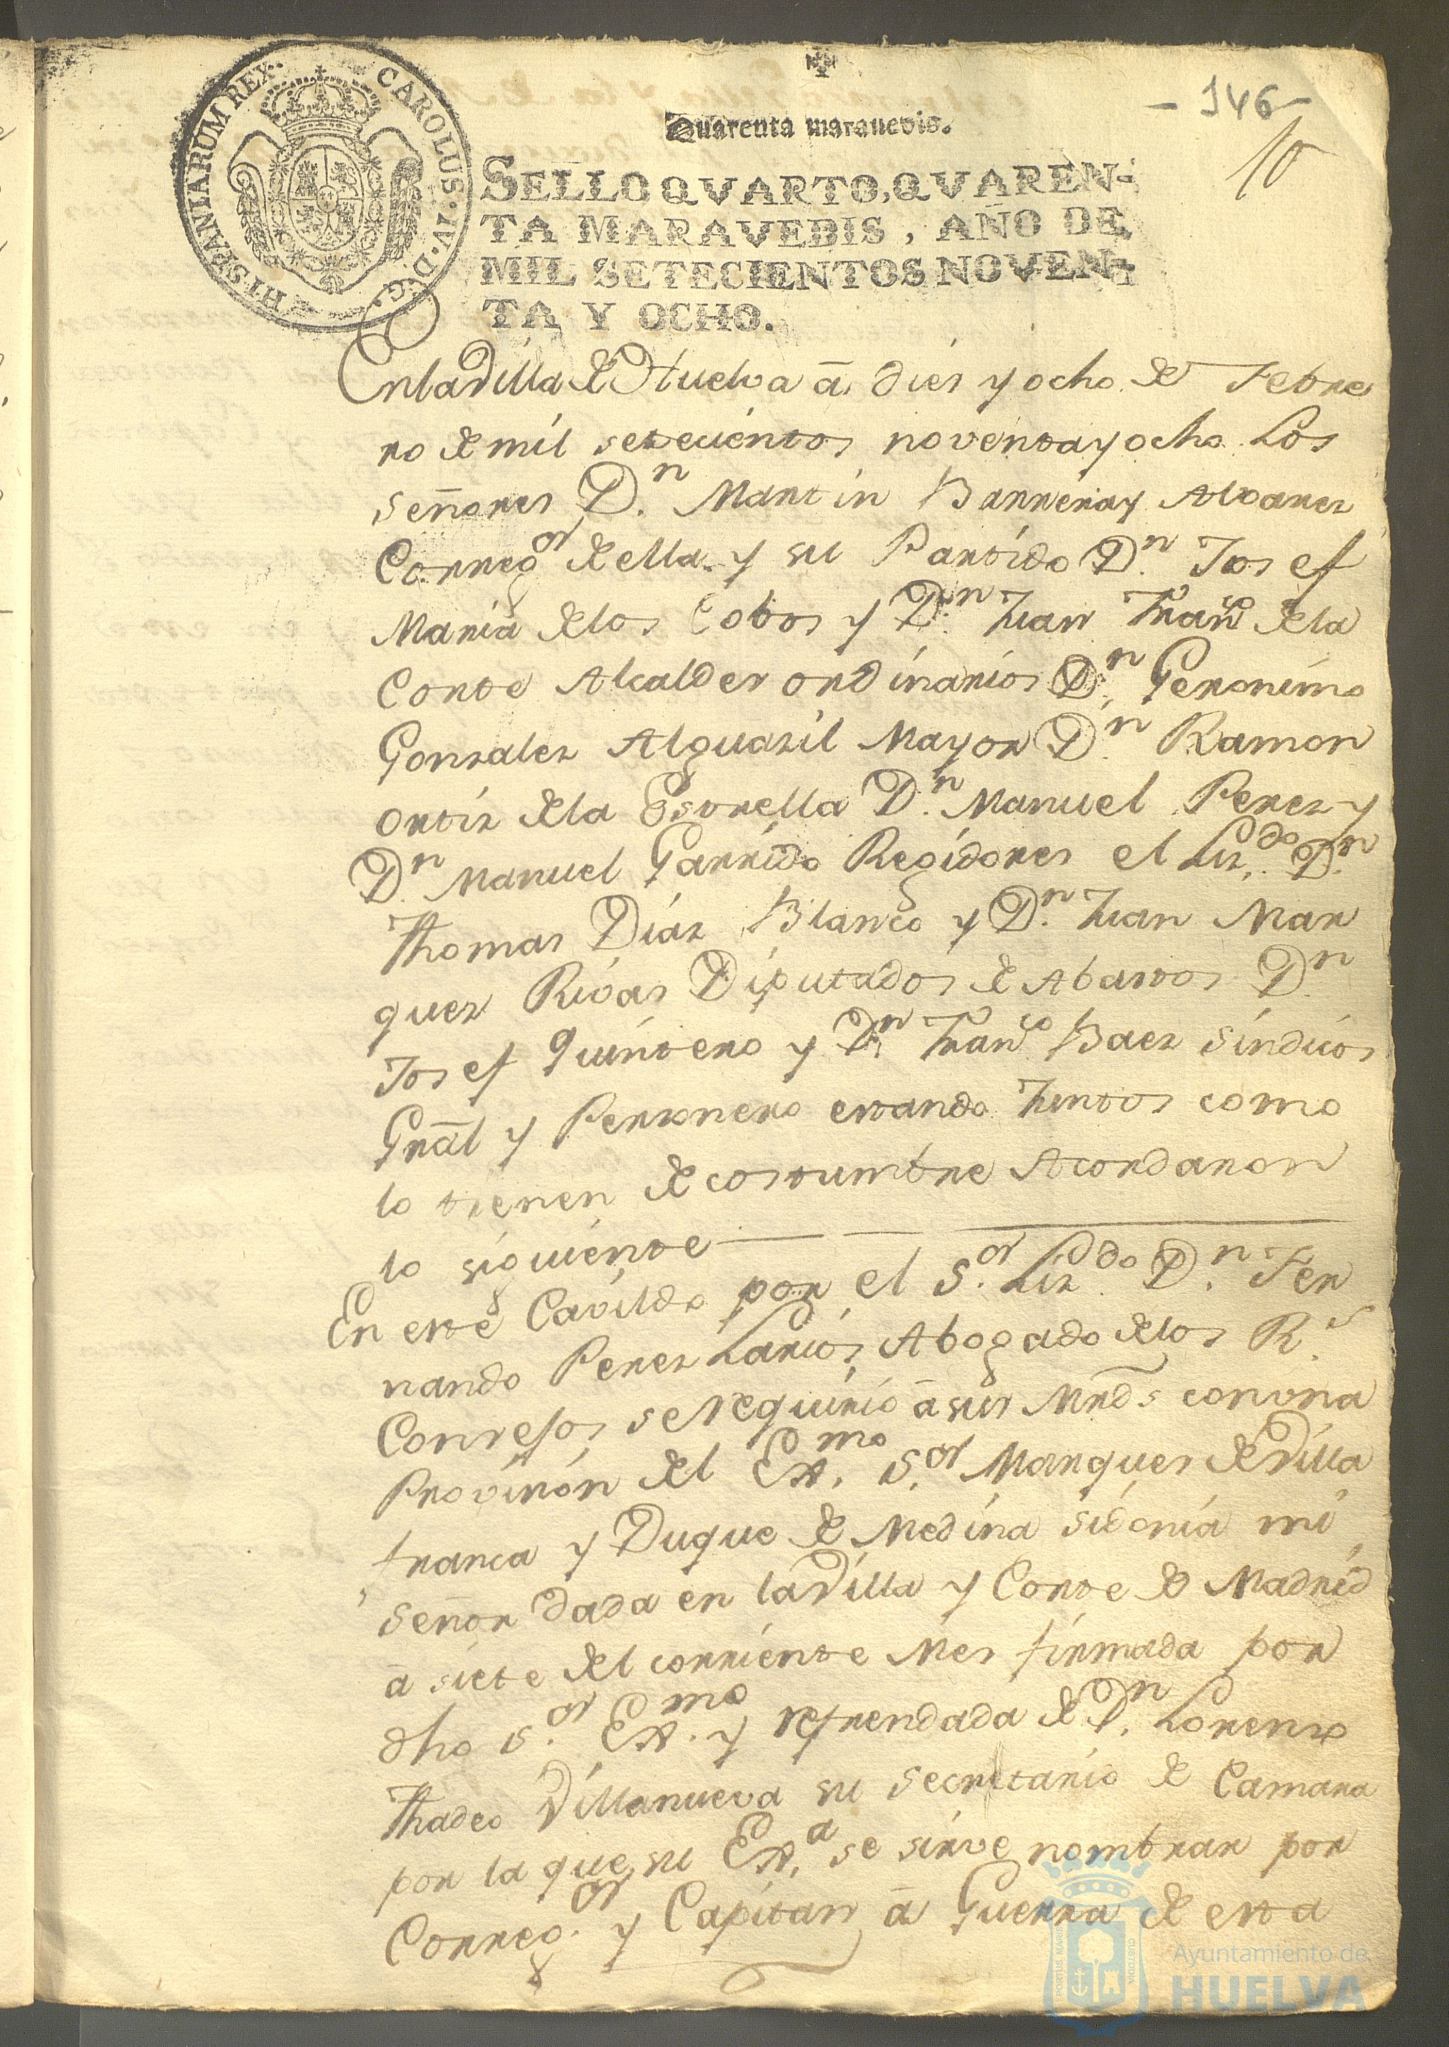 HISPANIARUM REX. CAROLUS. IV. D. G.
Quarenta maravedis.
- 146 -
10
SELLO QVARTO, QVAREN-
TA MARAVEDIS, AÑO DE
MIL SETECIENTOS NOVEN-
TA Y OCHO.
En la Villa de Huelva â dies y ocho de Febre
ro de mil setecientos noventa y ocho Los
señores D.n Martin Barrera y Alvarez
Correg.or de ella y su Partido D.n Josef
Maria de los Cobos y D.n Juan Fran.co de la
Corte Alcaldes ordinarios D.n Geronimo
Gonzales Alguasil Mayor D.n Ramon
Ortiz de la Estrella D.n Manuel Perez y
D.n Manuel Garrido Regidores el Liz.do D.n
Thomas Diaz Blanco y D.n Juan Mar
quez Rivas Diputados de Abastos D.n
Josef Quintero y D.n Fran.co Baez sindicos
Grāl y Personero estando Juntos como
lo tienen de costumbre Acordaron
lo siguiente
En este Cavildo por el S.or Liz.do D.n Fer
nando Perez Larios Abogado de los R.s
Consejos se requirio â sus Mrds con una
Provision del Ex.mo S.or Marques de Villa
franca y Duque de Medina sidonia mi
señor dada en la Villa y Corte de Madrid
â siete del corriente Mes firmada por
dho S.or Ex.mo y refrendada de D.n Lorenzo
Thadeo Villanueva su secretario de Camara
por la que su Ex.a se sirve nombrar por
Correg.or y Capitan â Guerra de esta
Ayuntamiento de
HUELVA